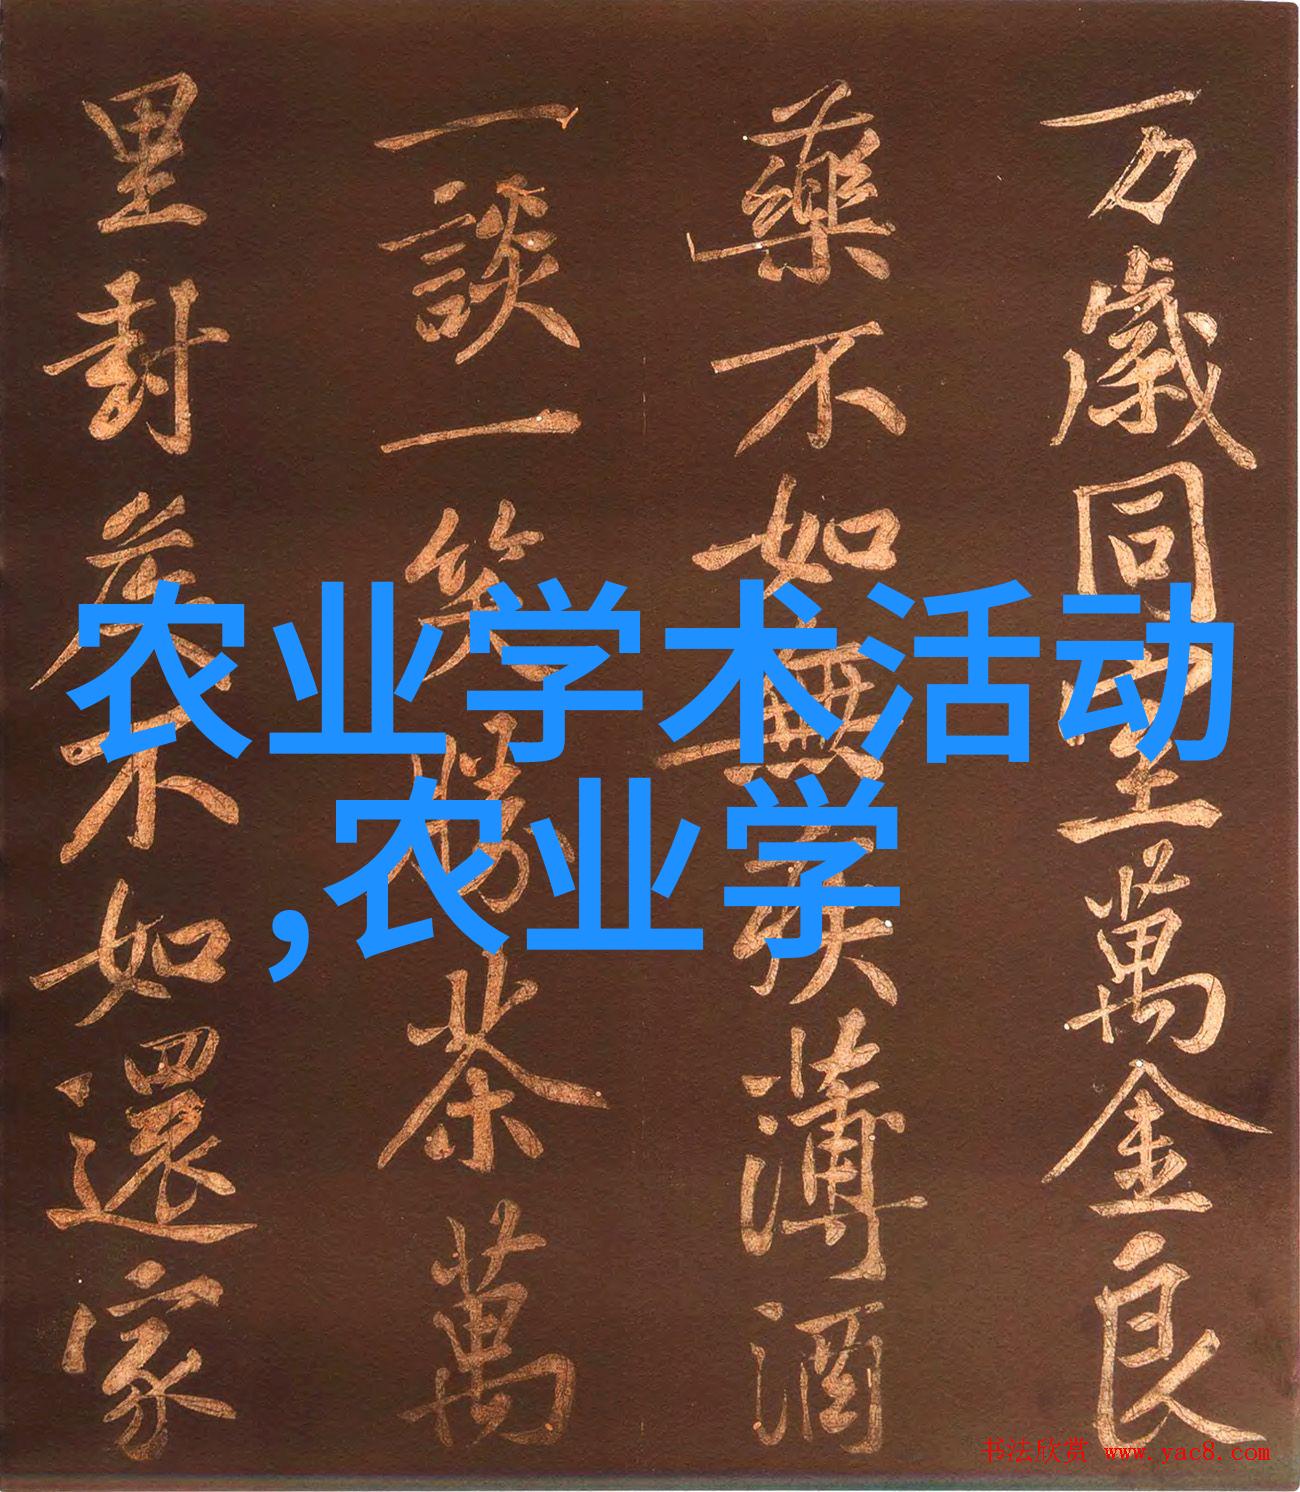 万歲同室萬金良
藥不如無疾薄酒
一談一笑勝茶萬
里封侯不如還家
农业学术活动
,农业学
书法欣赏 www.yac8.com